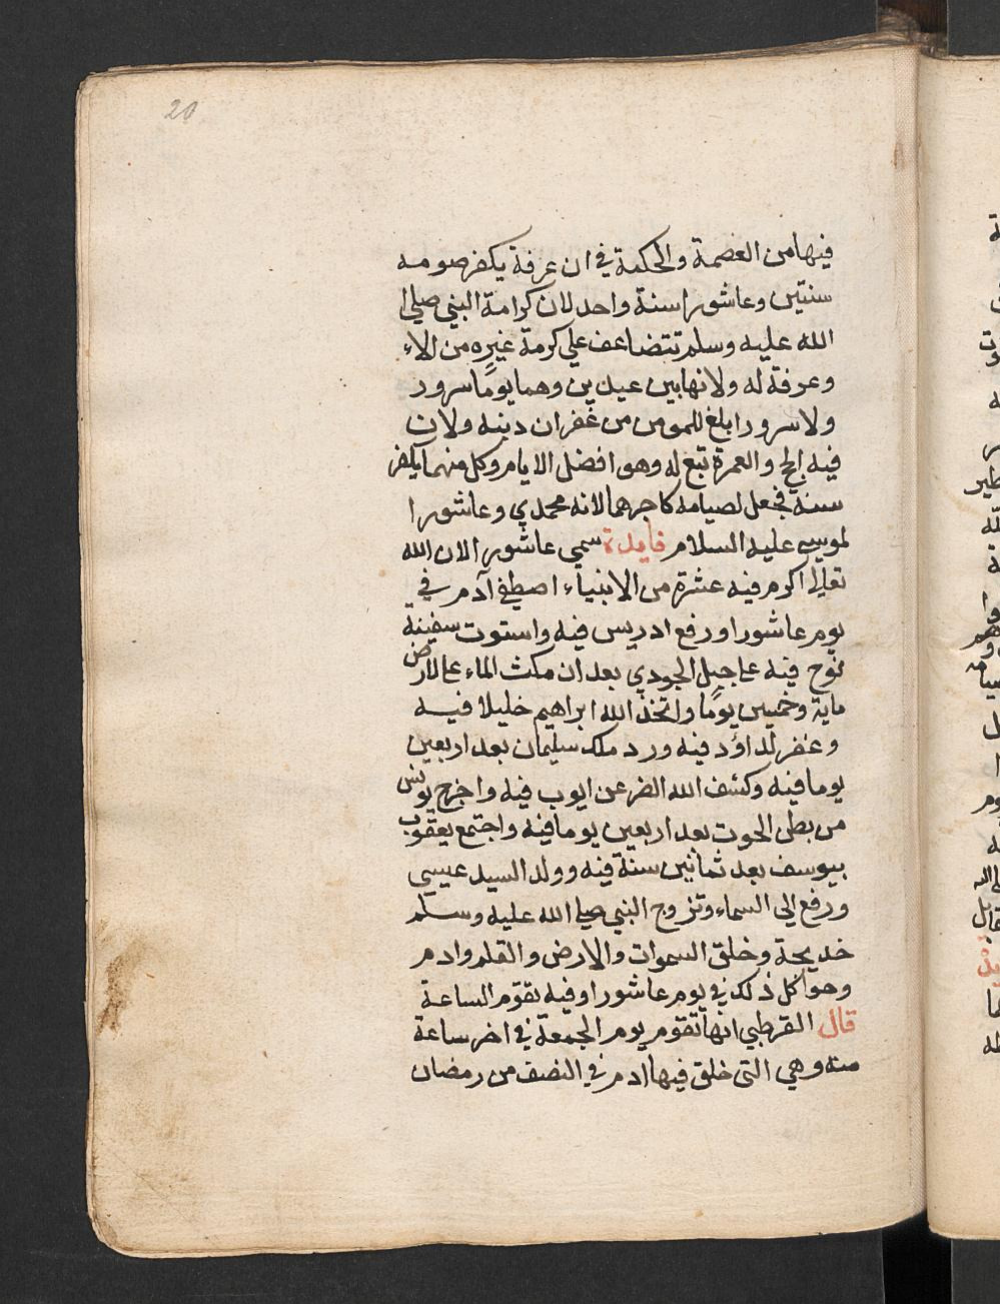 20
فيها من العصمة والحكمة في ان عرفة يكفر صومه
سنتين وعاشورا سنة واحد لان كرامة النبي صلي ا
الله عليه وسلم تتضاعف علي كرمة غيره من الاء
وعرفة له ولانها بين عيدين وهما يومًا سرور
ولا سرور ابلغ للمومن من غفران دينه ولان
فيه الحج والعمرة تبع له وهو افضل الايام وكل منهما يكفر
سنة فجعل لصيامه كاجرهما لانه محمدي وعاشورا
لموسي عليه السلام فايدة سمي عاشورا لان الله
تعالي اكرم فيه عشرة من الانبياء اصطفي آدم في
يوم عاشورا ورفع ادريس فيه واستوت سفينة
نوح فيه علي جبل الجودي بعد ان مكث الماء علي الارض
ماية وخمسين يومًا واتخذ الله ابراهيم خليلا فيه
وغفر لداؤد فيه ورد ملك سليمان بعد اربعين
يوما فيه وكشف الله الضر عن ايوب فيه واخرج يونس
من بطن الحوت بعد اربعين يوما فيه واجتمع يعقوب
بيوسف بعد ثمانين سنة فيه وولد السيد عيسي
ورفع الي السماء وتزوج النبي صلي الله عليه وسلم
خديجة وخلق السموات والارض والقلم وادم
وحوا كل ذلك في يوم عاشورا وفيه تقوم الساعة
قال القرطبي انها تقوم يوم الجمعة في اخر ساعة
منه وهي التي خلق فيها ادم في النصف من رمضان